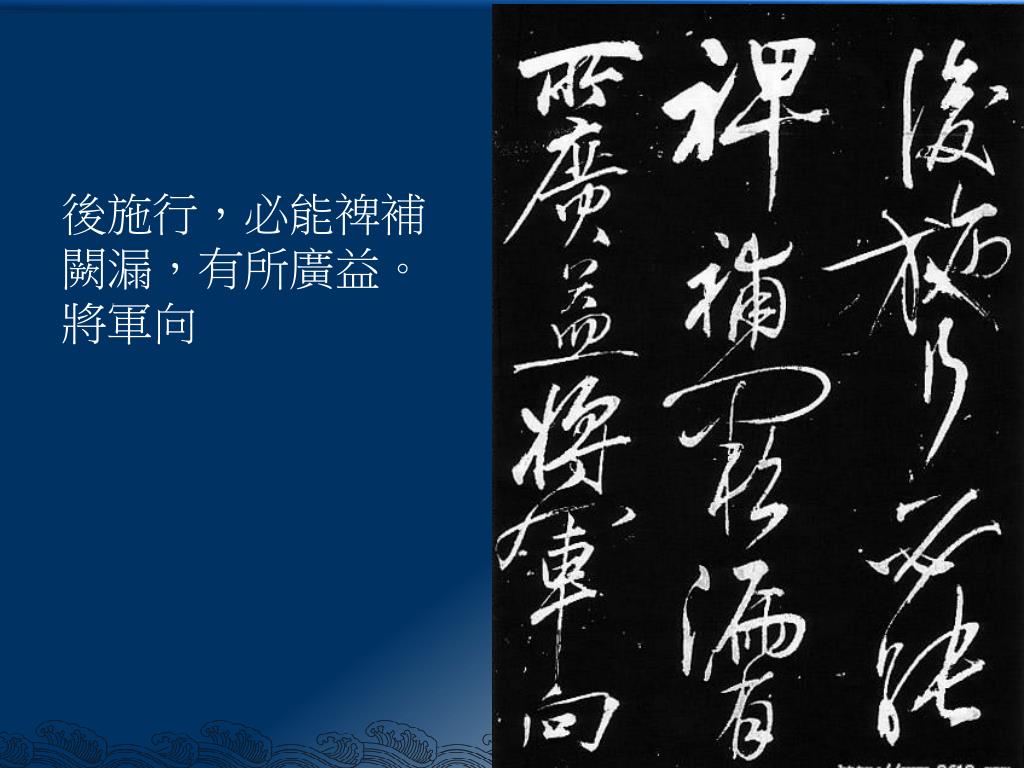 後施行，必能裨補
闕漏，有所廣益。
將軍向
後施行必能
裨補闕漏有
所廣益將軍向